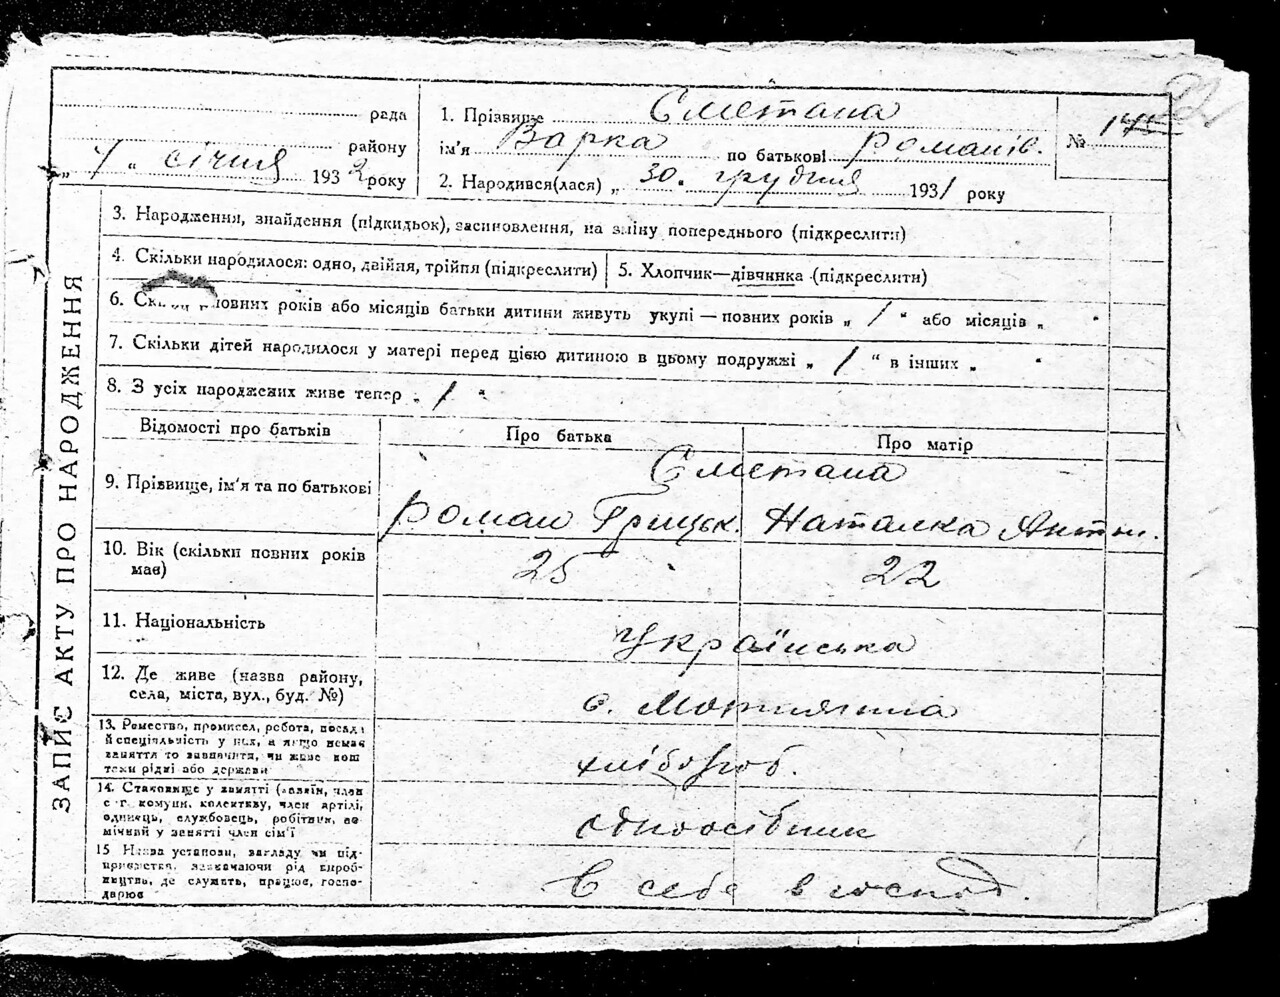 92
рада
району
„ 7 „ січня 1932 року
1. Прізвище Сметана
ім'я Варка по батькові Романів.
2. Народився(лася) „ 30. грудня 1931 року
№
ЗАПИС АКТУ ПРО НАРОДЖЕННЯ
3. Народження, знайдення (підкидьок), засиновлення, на зміну попереднього (підкреслити)
4. Скільки народилося: одно, двійня, трійня (підкреслити)
5. Хлопчик—дівчинка (підкреслити)
6. повних років або місяців батьки дитини живуть укупі — повних років „ 1 “ або місяців „ “
7. Скільки дітей народилося у матері перед цією дитиною в цьому подружжі „ 1 “ в інших „ “
8. З усіх народжених живе тепер „ 1 “
Відомості про батьків
Про батька
Про матір
9. Прізвище, ім'я та по батькові
Сметана
Роман Грицьк. Наталка Антон.
10. Вік (скільки повних років має)
25 22
11. Національність
Українська
12. Де живе (назва району,
села, міста, вул., буд. №)
с.
13. Ремество, промисел, робота, посада
й спеціяльність у них, а якщо немає
заняття то зазначити, чи живе кош
таки рідні або держави
хлібороб.
14. Становище у занятті (хазяїн, член
с.-г. комуни, колективу, член артілі,
одинець, службовець, робітник, по
мічний у занятті член сім'ї
одноосібник
15 Назва установи, закладу чи під-
приємства, зазначаючи рід вироб-
ництва, де служить, працює, госпо-
дарює
в себе в господ.